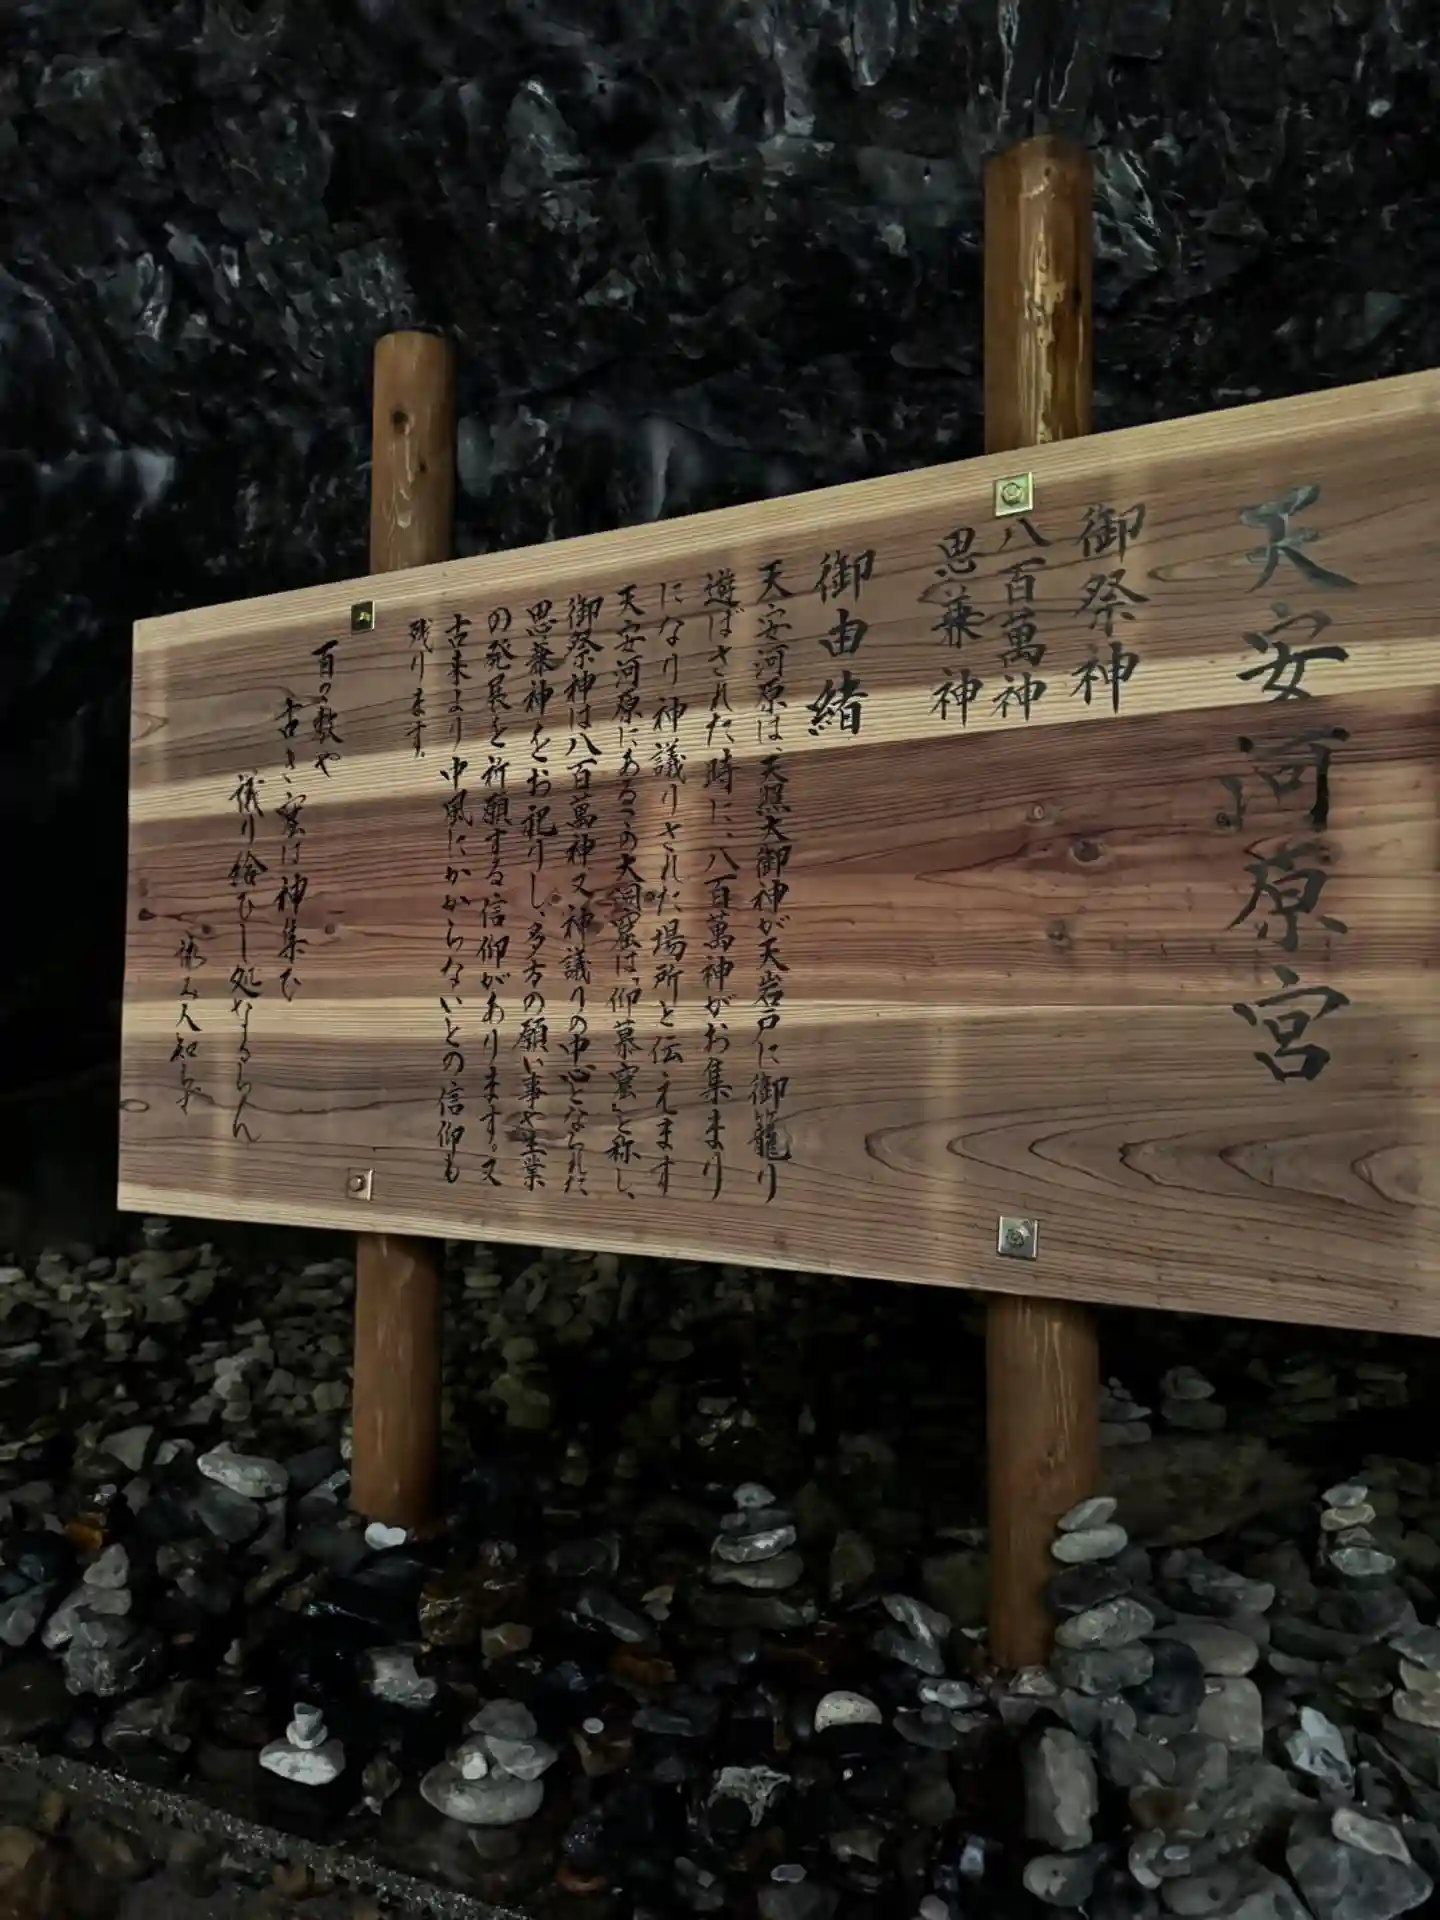 天安河原宮
御祭神
八百萬神
思兼神
御由緒
天安河原は、天照大御神が天岩戸に御籠り
遊ばされた時に、八百萬神がお集まり
になり神議りされた場所と伝えます
天安河原にあるこの大洞窟は「仰慕窟」と称し、
御祭神は八百萬神又神議りの中心となられた
思兼神をお祀りし、多方の願い事や生業
の発展を祈願する信仰があります。又
古来より中風にかからないとの信仰も
残ります。
百々敷や
古き窟は神集ひ
議り給ひし処なるらん
詠み人知らず